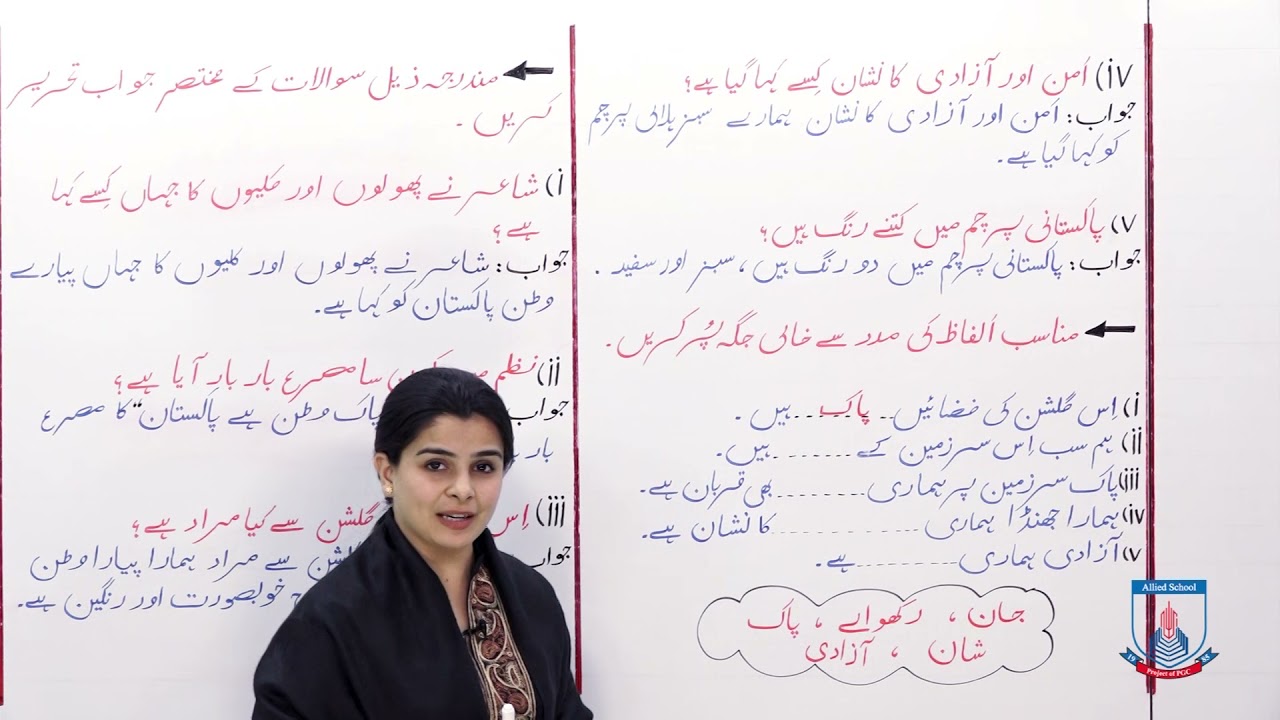 مندرجہ ذیل سوالات کے مختصر جواب تحریر
کریں ۔
i) شاعر نے پھولوں اور کلیوں کا جہاں کِسے کہا
ہے؟
جواب: شاعر نے پھولوں اور کلیوں کا جہاں پیارے
وطن پاکستان کو کہا ہے۔
ii) نظم میں سا مصرع بار بار آیا ہے؟
جواب پاک وطن ہے پاکستان" کا مصرع
بار
iii) اِس گلشن سے کیا مراد ہے؟
جواب گلشن سے مراد ہمارا پیارا وطن
خوبصورت اور رنگین ہے۔
iv) اَمن اور آزادی کا نشان کِسے کہا گیا ہے؟
جواب: اَمن اور آزادی کا نشان ہمارے سبز ہلالی پرچم
کو کہا گیا ہے۔
v) پاکستانی پرچم میں کتنے رنگ ہیں؟
جواب: پاکستانی پرچم میں دو رنگ ہیں، سبز اور سفید ۔
مناسب اَلفاظ کی مدد سے خالی جگہ پُر کریں ۔
i) اِس گلشن کی فضائیں ۔۔ پاک ۔۔ ہیں ۔
ii) ہم سب اِس سرزمین کے ۔۔۔۔۔۔۔ ہیں۔
iii) پاک سرزمین پر ہماری ۔۔۔۔۔۔۔۔ بھی قربان ہے۔
iv) ہمارا جھنڈا ہماری ۔۔۔۔۔۔۔۔۔۔ کا نشان ہے۔
v) آزادی ہماری ۔۔۔۔۔۔۔۔ ہے۔
جان ، رکھوالے ، پاک
شان ، آزادی
Allied School
1985
Project of PGC